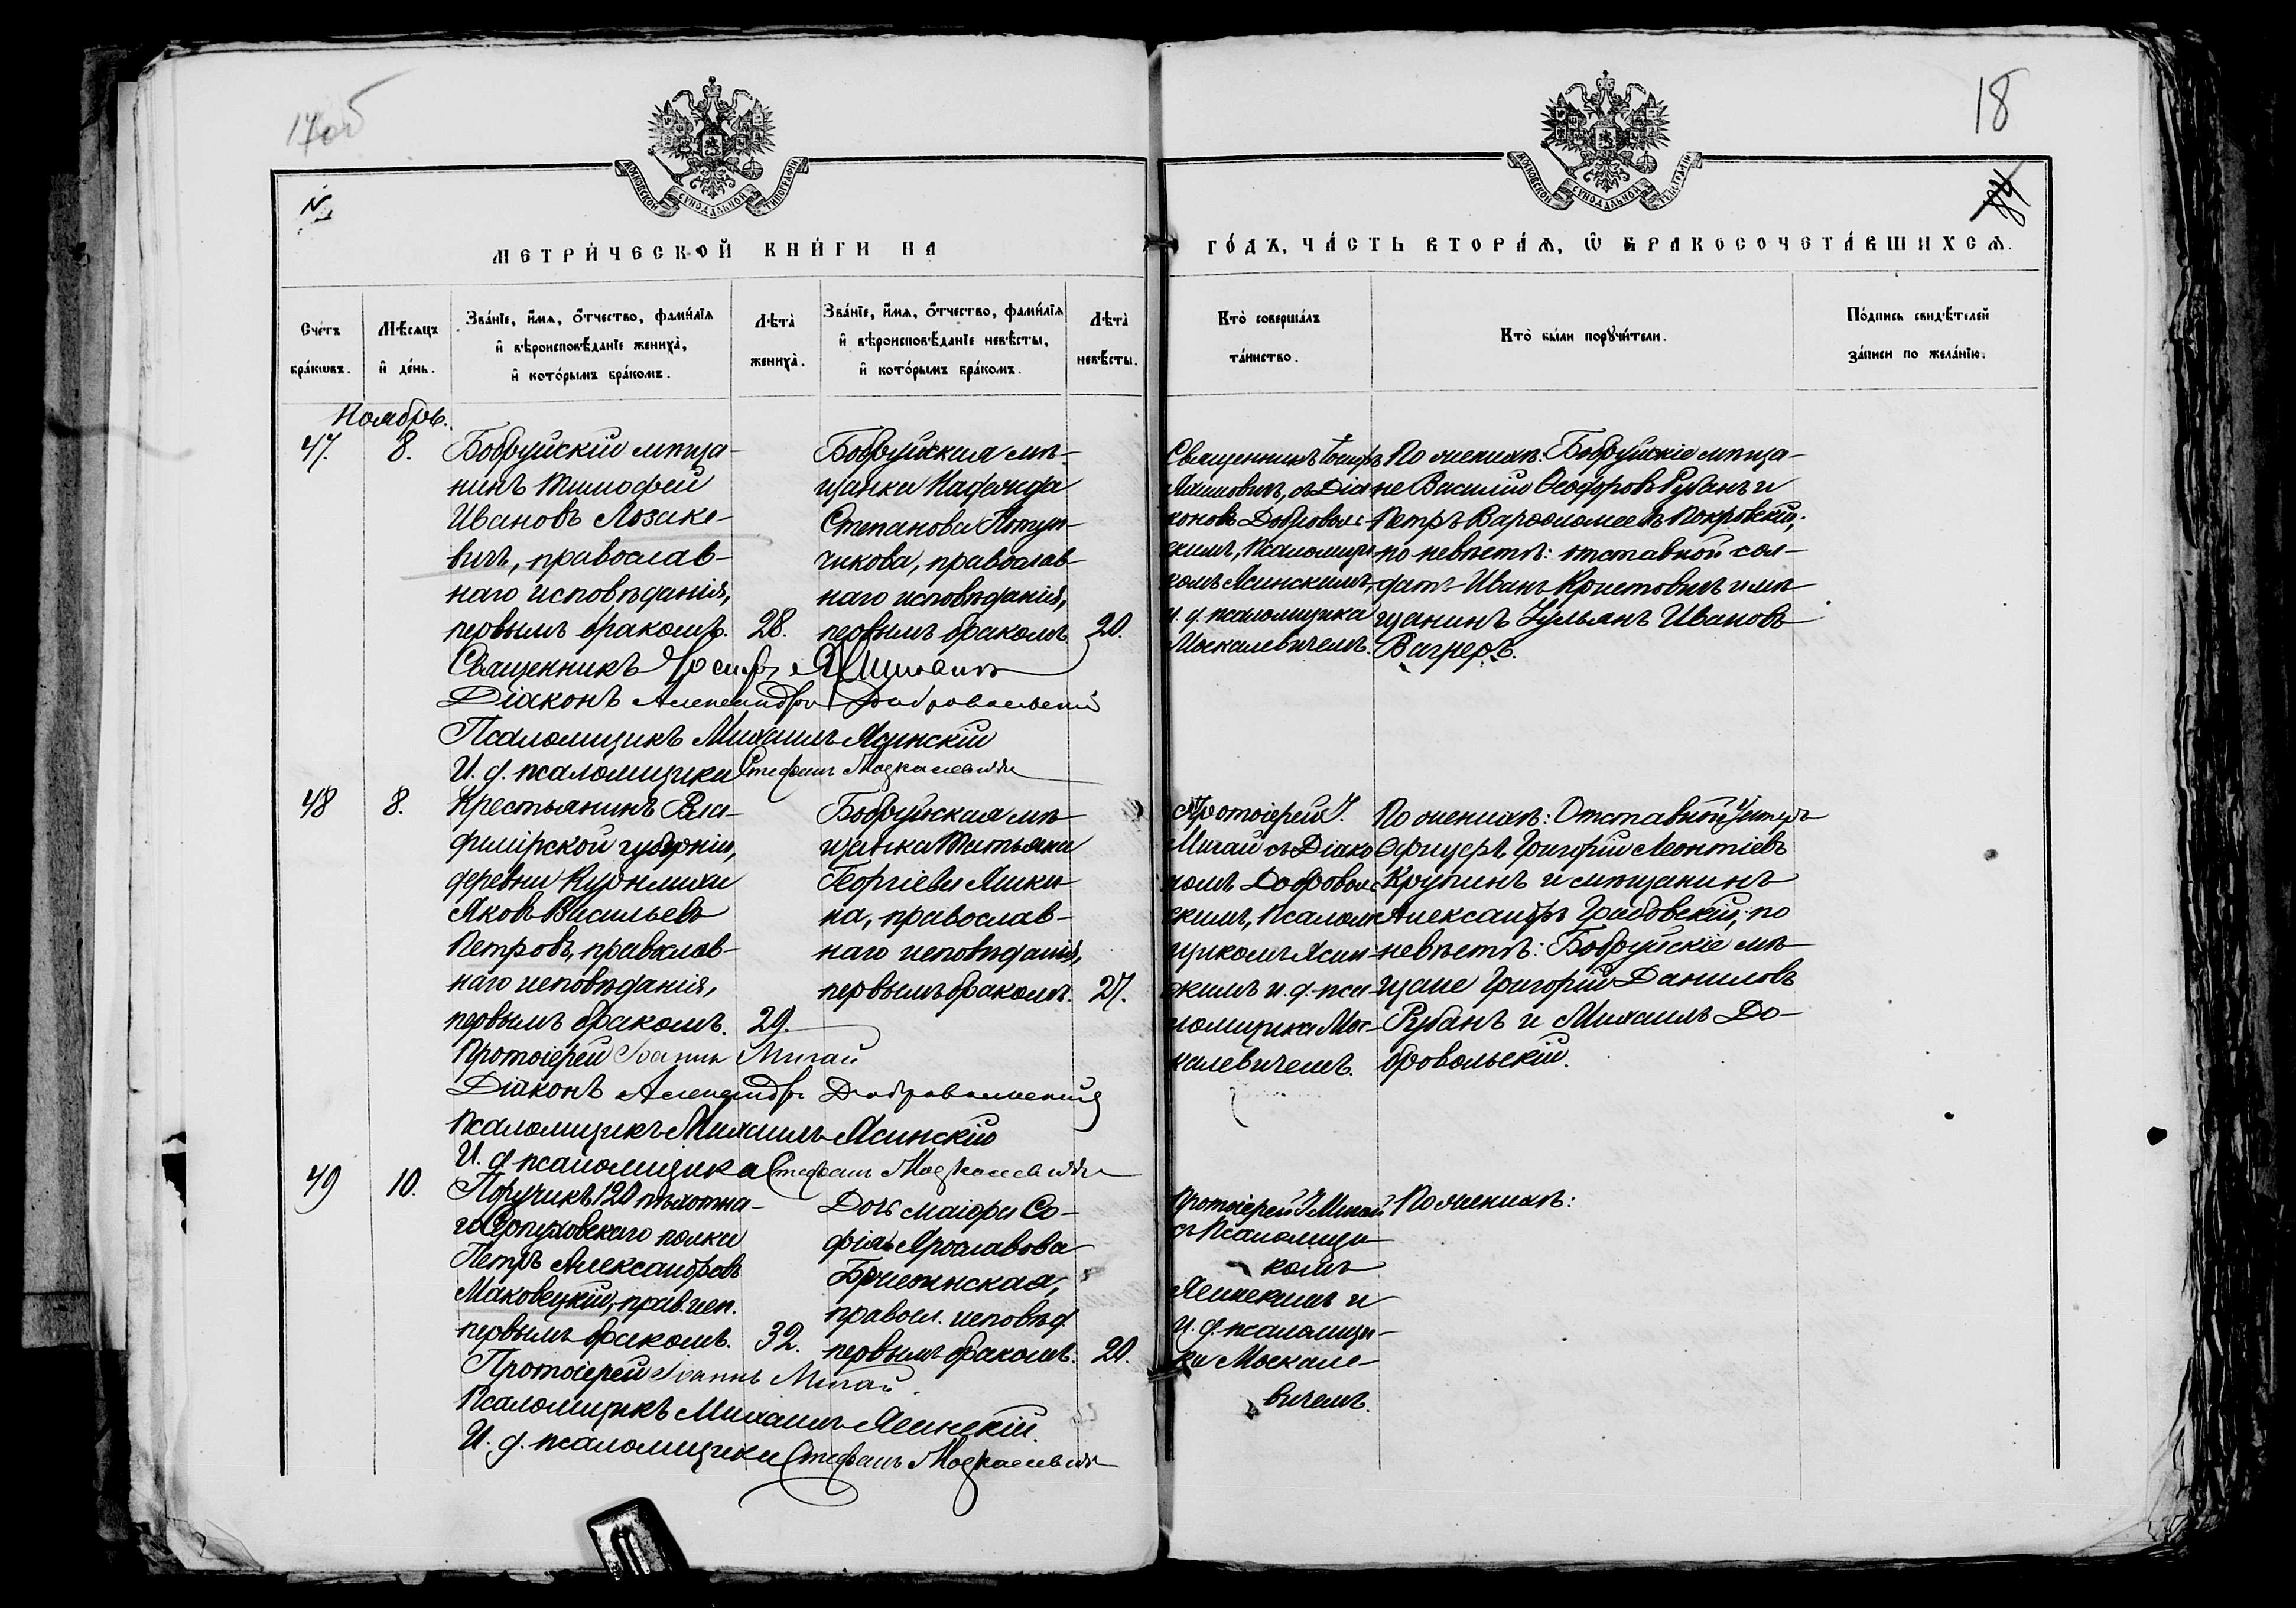 17 об
18
84
№
МОСКОВСКОЙ СѴНОДАЛЬНОЙ ТИПОГРАФІИ
МОСКОВСКОЙ СѴНОДАЛЬНОЙ ТИПОГРАФІИ
МЕТРИ́ЧЕСКОЙ КНИ́ГИ НА
ГО́ДЪ, ЧА́СТЬ ВТОРА́Ѧ, Ѽ БРАКОСОЧЕТА́ВШИХСѦ.
Сче́тъ
бра́кѡвъ.
Мѣ́сѧцъ
и҆ де́нь.
Зва́нїе, и҆́мѧ, ѻ҆́тчество, фами́лїѧ
и҆ вѣроисповѣ́данїе жениха̀,
и҆ кото́рымъ бра́комъ.
Лѣта̀
жениха̀.
Зва́нїе, и҆́мѧ, ѻ҆́тчество, фами́лїѧ
и҆ вѣроисповѣ́данїе невѣ́сты,
и҆ кото́рымъ бра́комъ.
Лѣта̀
невѣ́сты.
Кто̀ соверша́лъ
та́инство.
Кто̀ бы́ли порꙋчи́тели.
По́дпись свидѣ́телей
за́писи по жела́нїю.
Ноябрь.
47.
8.
Бобруйскій мѣща-
нинъ Тимофей
Ивановъ Лозаке-
вичъ, православ-
наго исповѣданія,
первымъ бракомъ.
28.
Бобруйская мѣ-
щанка Надежда
Степанова
чикова, православ-
наго исповѣданія,
первымъ бракомъ
20.
Священникъ Іосифъ
Якимовичъ, съ Діа
кономъ Добровольс-
кимъ, Псаломщи
комъ Ясинскимъ,
и. д. псаломщика
Москалевичемъ.
По женихѣ: Бобруйскіе мѣща-
не Василій Ѳеодоровъ Рубанъ и
Петръ Варѳоломеевъ Покровскій;
по невѣстѣ: отставной сол-
датъ Иванъ Кристовичъ и мѣ
щанинъ Іульянъ Ивановъ
Вагнеръ.
Священникъ Іосифъ Якимовичъ
Діаконъ Александръ Добровольскій
Псаломщикъ Михаилъ Ясинскій
И. д. псаломщика Стефанъ Москалевичъ
48
8.
Крестьянинъ Вла-
димірской губерніи,
деревни Курнлихи
Яковъ Васильевъ
Петровъ, православ-
наго исповѣданія,
первымъ бракомъ.
29.
Бобруйская мѣ-
щанка Татьяна
Георгіева Яшки-
на, православ-
наго исповѣданія,
первымъ бракомъ.
27.
Протоіерей І.
Мигай съ Діако
номъ Добровольс
кимъ, Псалом
щикомъ Ясин-
скимъ и. д. пса-
ломщика Мос-
калевичемъ.
По женихѣ: Отставной Унтеръ
Офицеръ Григорій Леонтіевъ
Крупинъ и мѣщанинъ
Александръ Грибовскій; по
невѣстѣ: Бобруйскіе мѣ-
щане Григорій Даниловъ
Рубанъ и Михаилъ До-
бровольскій.
Протоіерей Іоаннъ Мигай
Діаконъ Александръ Добровольскій
Псаломщикъ Михаилъ Ясинскій
И. д. псаломщика Стефанъ Москалевичъ
49
10.
Поручикъ 120 пѣхотна-
го Серпуховскаго полка
Петръ Александровъ
Маковецкій, прав. исп.
первымъ бракомъ.
32.
Дочь маіора Со-
фія Ярославова
правосл. исповѣд.
первымъ бракомъ.
20.
Протоіерей І Мигай
съ Псаломщи
комъ
Ясинскимъ и
и. д. псаломщи-
ка Москале-
вичемъ.
По женихѣ:
Протоіерей Іоаннъ Мигай.
Псаломщикъ Михаилъ Ясинскій.
И. д. псаломщика Стефанъ Москалевичъ